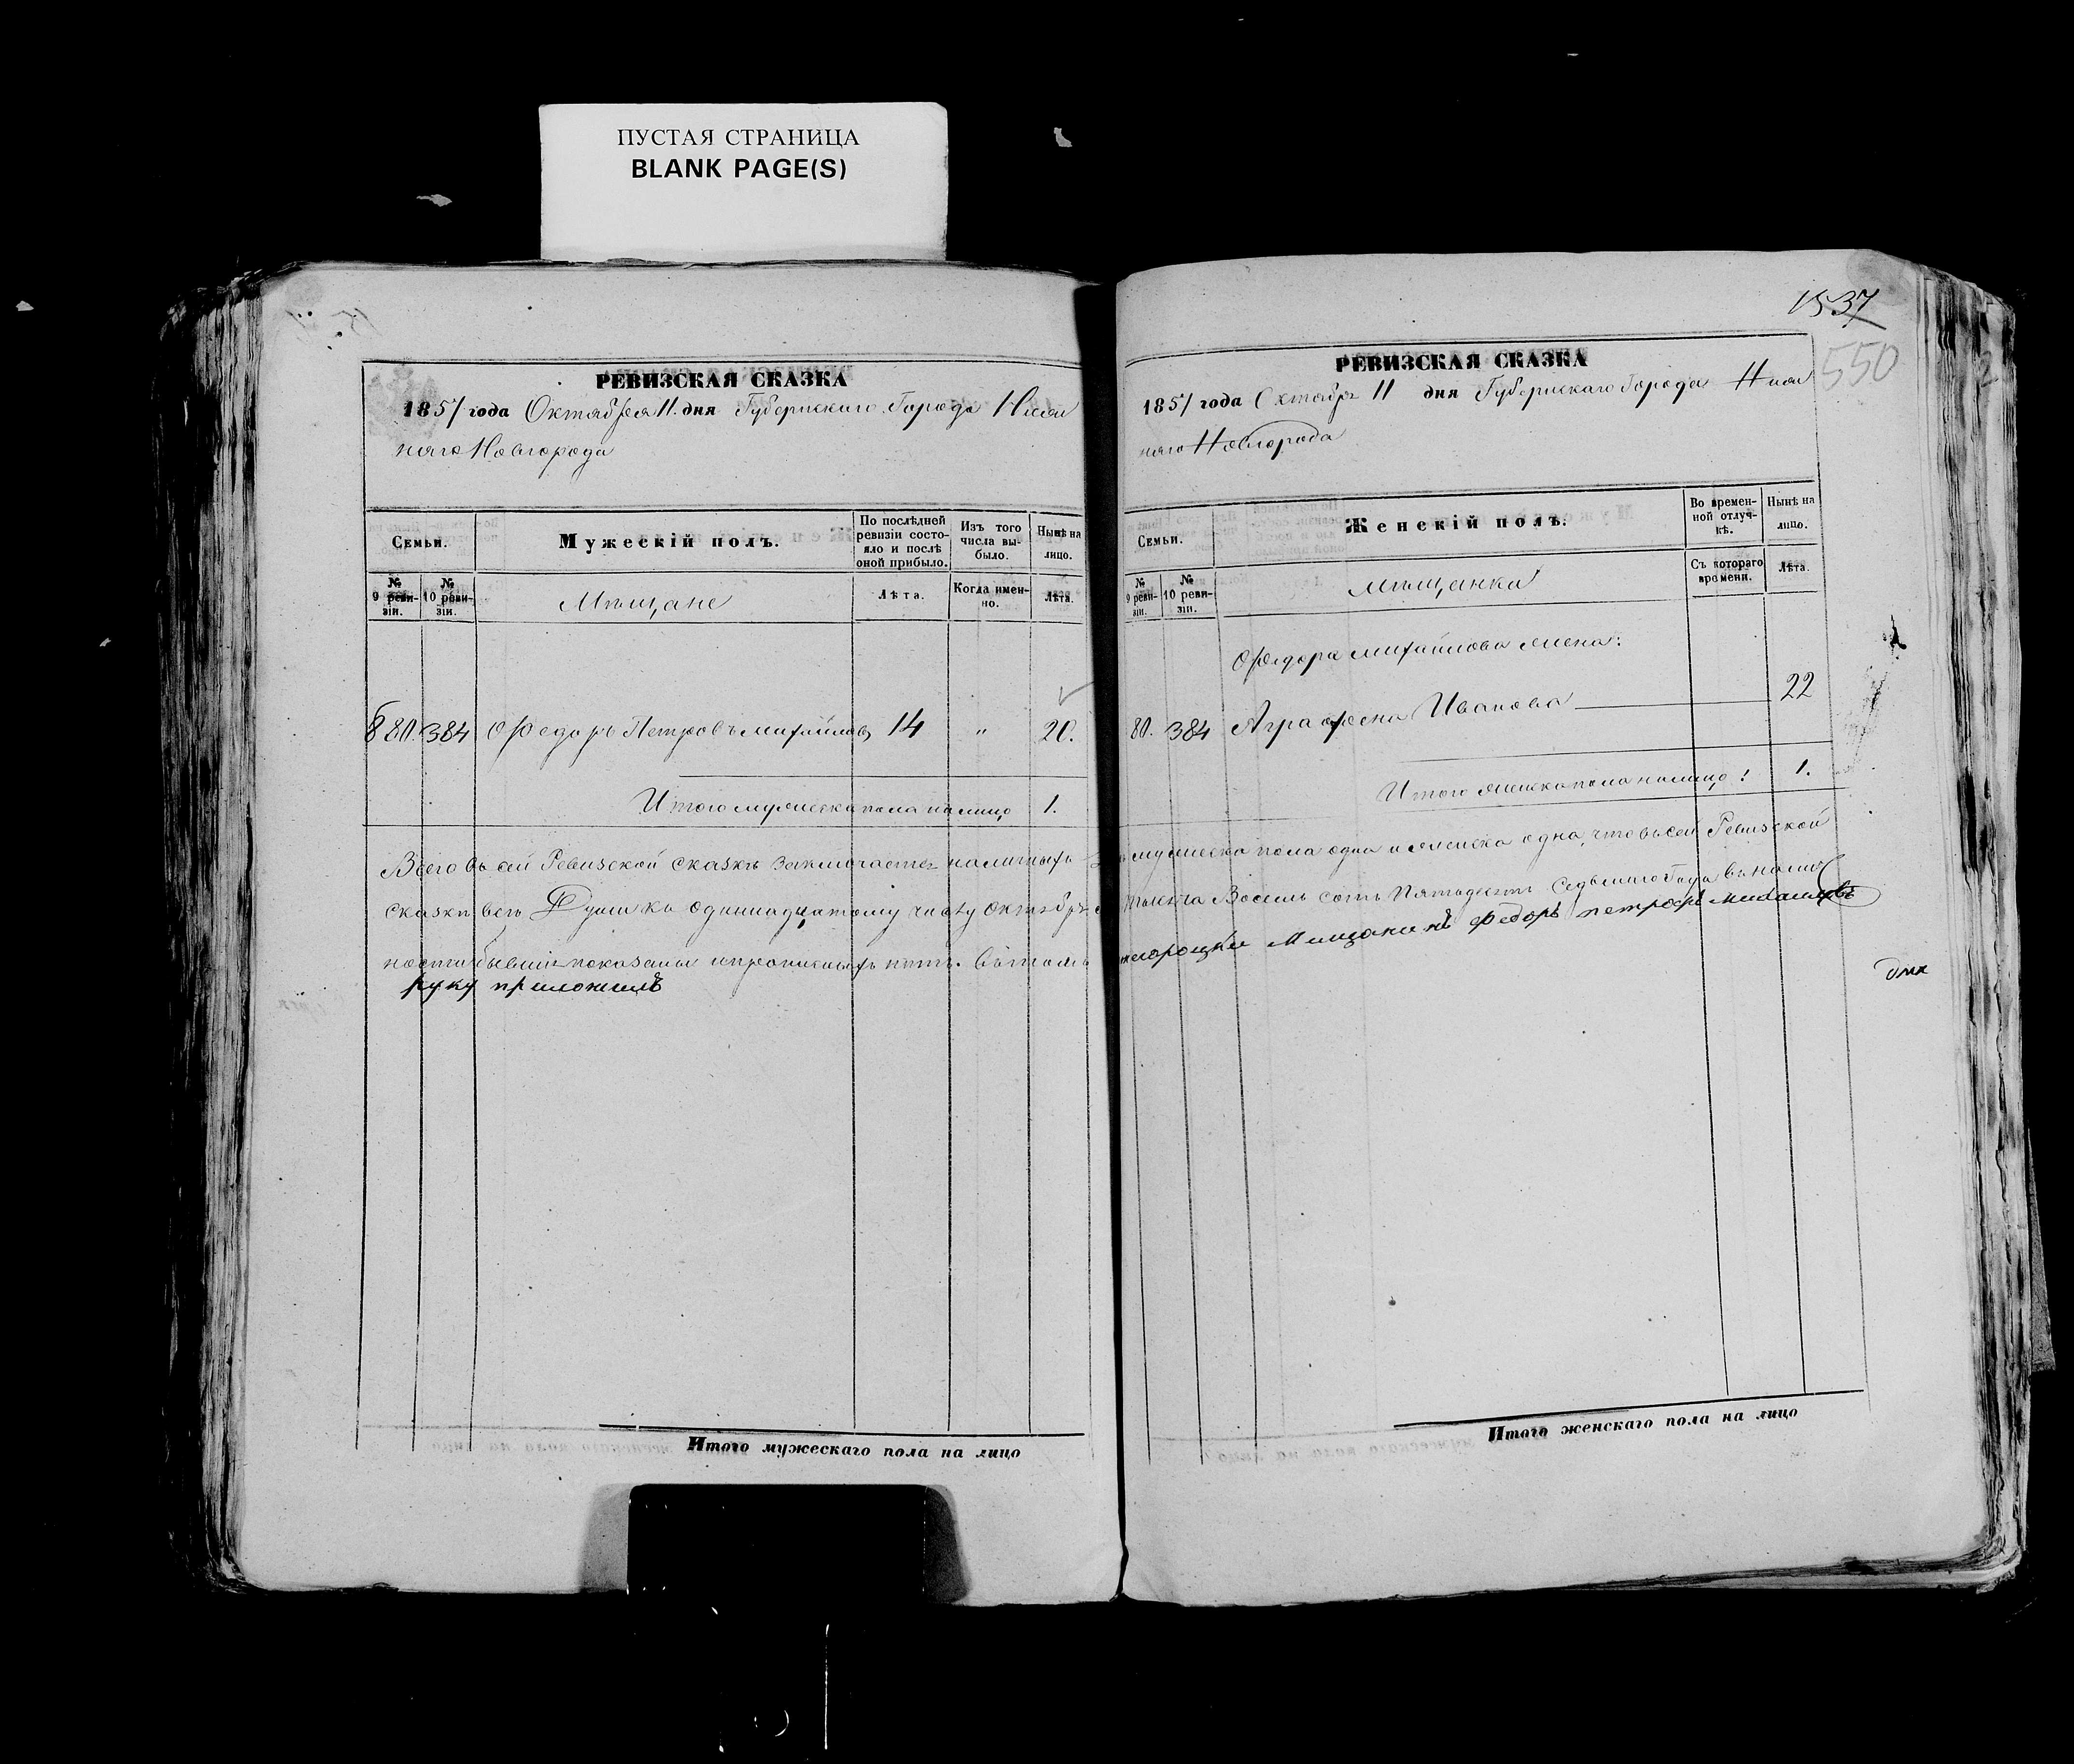 ПУСТАЯ СТРАНИЦА
BLANK PAGE(S)
РЕВИЗСКАЯ СКАЗКА
1857 года Октября 11 дня Губернскаго Города Ниж
няго Новгорода
Семьи.
Мужескій полъ.
По послѣдней ревизіи состояло и послѣ оной прибыло.
Изъ того числа выбыло.
Нынѣ на лицо.
№ 9 ревизіи.
№ 10 ревизіи.
Мѣщане
Лѣта.
Когда именно.
Лѣта.
80. 384 Ѳедоръ Петровъ Михайловъ 14 " 20.
Итого мужеска пола на лицо 1.
Всего въ сей Ревизской сказкѣ заключается наличныхъ
сказки всѣ Души къ одиннадцатому числу Октября
ности бывшіе показаны и прописныхъ нѣтъ. Въ томъ
руку приложилъ
Итого мужескаго пола на лицо
1537
550
РЕВИЗСКАЯ СКАЗКА
1857 года Октября 11 дня Губернскаго Города Ниж
няго Новгорода
Семьи.
Женскій полъ.
Во временной отлучкѣ.
Нынѣ на лицо.
№ 9 ревизіи.
№ 10 ревизіи.
Мѣщанка
Съ котораго времени.
Лѣта.
Ѳедора Михайлова жена:
80. 384 Аграфена Иванова 22
Итого женска пола на лицо: 1.
мужеска пола одна и женска одна, что въ сей Ревизской
тысяча Восемь сотъ Пятьдесятъ Седьмаго Года въ налич
мещанинъ Федоръ петровъ михаиловъ
Итого женскаго пола на лицо